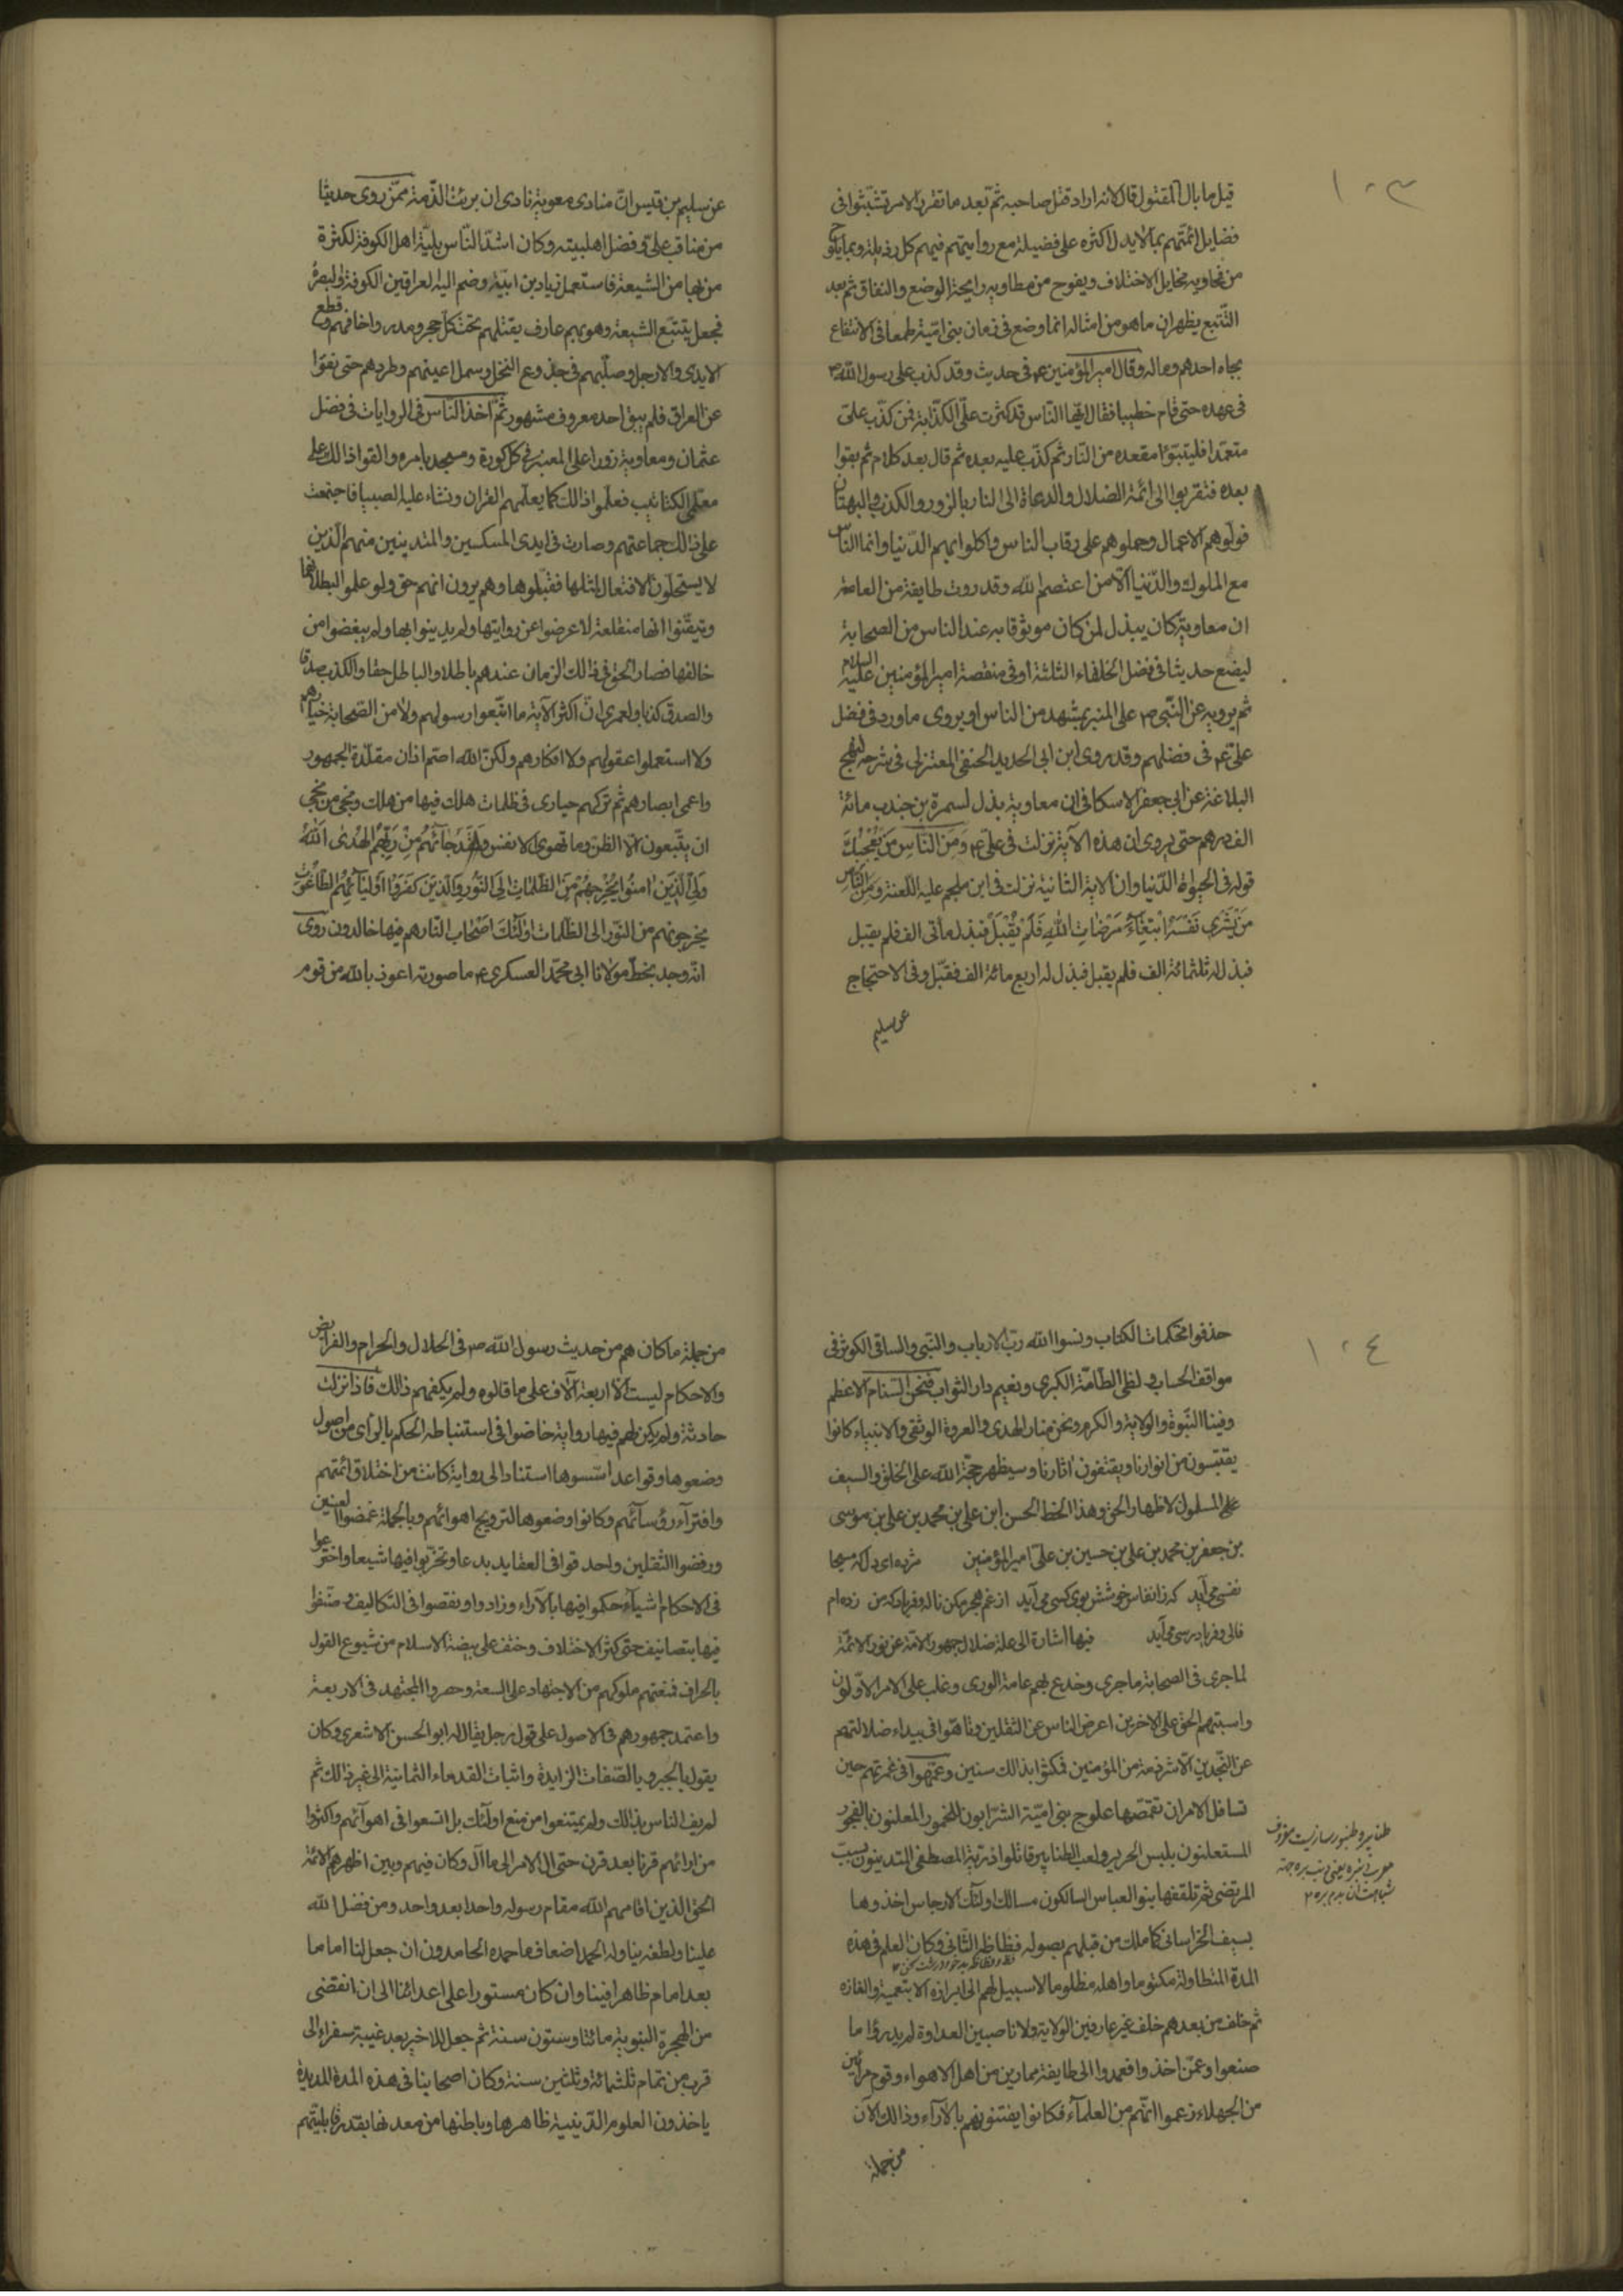 ١٠٣
قيل ما بال المقتول قال لانه اراد قتل صاحبه ثم بعد ما تقرر الامر تشبثوا فى
فضايل ائمتهم بما لا يدل اكثره على فضيلة مع روايتهم فيهم كل رذيلة وبما يلوح
من فحاويه مخايل الاختلاف ويفوح من مطاويه رايحة الوضع والنفاق ثم بعد
التتبع يظهر ان ما هو من امثاله انما وضع فى زمان بنى امية طمعا فى الانتفاع
بجاه احدهم وماله وقال امير المؤمنين ع فى حديث وقد كذب على رسول الله ص
فى عهده حتى قام خطيبا فقال ايها الناس قد كثرت على الكذابة فمن كذب على
متعمدا فليتبوّا مقعده من النار ثم كذب عليه بعده ثم قال بعد كلام ثم بقوا
بعده فتقربوا الى ائمة الضلال والدعاة الى النار بالزور والكذب والبهتان
فولّوهم الاعمال وحملوهم على رقاب الناس واكلوا بهم الدنيا وانما الناس
مع الملوك والدنيا الا من اعتصم لله وقد روت طايفة من العامة
ان معاوية كان يبذل لمن كان موثوقا به عند الناس من الصحابة
ليضع حديثا فى فضل الخلفاء الثلثة او فى منقصة امير المؤمنين عليه السلام
ثم يرويه عن النبى ص على المنبر بمشهد من الناس او يروى ما ورد فى فضل
على ع فى فضلهم وقد روى ابن ابى الحديد الحنفى المعتزلى فى شرحه لنهج
البلاغة عن ابى جعفر الاسكافى ان معاوية بذل لسمرة بن جندب مائة
الف درهم حتى يروى ان هذه الآية نزلت فى على ع وَمِنَ النّاسِ مَن يُعْجِبُكَ
قوله فى الحيوة الدنيا وان الاية الثانية نزلت فى ابن ملجم عليه اللعنة وَمِنَ النّاسِ
مَن يَشْرِى نَفْسَهُ ابْتِغَاءَ مَرْضَاتِ اللهِ فَلَمْ يُقْبَلْ فبذل له مأتى الف فلم يقبل
فبذل له ثلثمائة الف فلم يقبل فبذل له اربع مائة الف فقبل وفى الاحتجاج
عن سليم
عن سليم بن قيس ان منادى معوية نادى ان برئت الذمة ممن روى حديثا
من مناقب على وفضل اهل بيته وكان اشد الناس بلية اهل الكوفة لكثرة
من بها من الشيعة فاستعمل زياد بن ابيه وضم اليه العراقين الكوفة والبصرة
فجعل يتتبع الشيعة وهو بهم عارف يقتلهم تحت كل حجر ومدر واخافهم وقطع
الايدى والارجل وصلبهم فى جذوع النخل وسمل اعينهم وطردهم حتى نفوا
عن العراق فلم يبق احد معروف مشهور ثم اخذ الناس فى الروايات فى فضل
عثمان ومعاوية زورا على المنبر فى كل كورة ومسجد بامره والقوا ذالك على
معلمى الكتاتيب فعلموا ذالك كما يعلمهم القران ونشاء عليه الصبيا فاجتمعت
على ذالك جماعتهم وصارت فى ايدى المسكسين والمتدينين منهم الذين
لا يستحلون الافتعال لمثلها فقبلوها وهم يرون انهم حق ولو علموا ابطلانها
وتيقنوا انها منقلعة لاعرضوا عن روايتها ولم يدينوا بها ولم يبغضوا من
خالفها فصار الحق فى ذالك الزمان عندهم باطلا والباطل حقا والكذب صدقا
والصدق كذبا ولعمرى ان اكثر الآية ما اتبعوا رسولهم ولا من الصحابة خيارهم
ولا استعملوا عقولهم ولا افكارهم ولكن الله اصم اذان مقلدة الجمهور
واعمى ابصارهم ثم تركهم حيارى فى ظلمات هلك فيها من هلك ونجى من نجى
ان يتبعون الا الظن وما تهوى الانفس وَلَقَدْ جَآءَهُم مِنْ رَبِّهِمُ الهُدٰى اَللهُ
وَلِىُّ الَّذِينَ اٰمنُوا يُخْرِجُهُمْ مِنَ الظُّلُمَاتِ اِلَى النُّورِ وَالَّذِينَ كَفَرُوا اَوْلِيَآءُهُمُ الطَّاغُوت
يخرجونهم من النور الى الظلمات اولٰئكَ اَصْحَاب النار هم فيها خالدون روى
انه وجد بخط مولانا ابى محمد العسكرى ع ما صورته اعوذ بالله من قوم
١٠٤
حذفوا محكمات الكتاب ونسوا الله رب الارباب والنبى والساقى الكوثر فى
مواقف الحساب ولظى الطامة الكبرى ونعيم دار الثواب فنحن السنام الاعظم
وفينا النبوة والولاية والكرم ونحن منار الهدى والعروة الوثقى والانبياء كانوا
يقتبسون من انوارنا ويقتفون اثارنا وسيظهر حجة الله على الخلق والسيف
على المسلول لاظهار الحق وهذا الخط الحسن ابن على بن محمد بن على بن موسى
بن جعفر بن محمد بن على بن حسين بن على امير المؤمنين مژده اى دل كه مسيحا
نفسى مى آيد كه ز انفاس خوشش بوى كسى مى آيد از غم هجر مكن ناله و فرياد كه من زده ام
فالى و فريادرسى مى آيد فيها اشارة الى علة ضلال جهور الامة عن نور الائمة
لما جرى فى الصحابة ما جرى وخدع بهم عامة الورى وغلب على الامر الاولون
واسبتهم الحق على الاخرين اعرض الناس عن الثقلين وتاهوا فى بيداء ضلالتهم
عن النجدين الا شرذمة من المؤمنين فمكثوا بذالك سنين وعمهوا فى غمرتهم حين
تسافل الامر ان تقمصها علوج بنى امية الشرابون للخمور المعلنون بالفجور
المستعلنون بلبس الحرير ولعب الطنابير قاتلوا ذرية المصطفى المتدينون بسبّ
المرتضى ثم تلقفها بنو العباس السالكون مسالك اولئك الارجاس اخذوها
بسيف الخراسانى كما ملك من قبلهم بصوله فظاظة الثانى وكان العلم فى هذه
المدة المتطاولة مكتوما واهله مظلوما لا سبيل لهم الى ابرازه الا بتعمية والغازه
ثم خلف من بعدهم خلف غير عارفين الولاية ولا ناصبين العداوة لم يدروا ما
صنعوا وعمن اخذوا فعمدوا الى طايفة ممارين من اهل الاهواء وقوم مرائين
من الجهلاء زعموا انهم من العلمآء فكانوا يفتنونهم بالآراء وذالك لان
من جملة
من جملة ما كان هم من حديث رسول الله ص فى الحلال والحرام والفرايض
والاحكام ليست الا اربعة آلاف على ما قالوه ولم يكفهم ذالك فاذا نزلت
حادثة ولم يكن لهم فيها رواية خاضوا فى استنباطه الحكم بالراى من اصول
وضعوها وقواعد اسسوها استنادا الى رواية كانت من اختلاق ائمتهم
وافترآء رؤسآئهم وكانوا وضعوها لترويج اهوائهم وبالجملة غمضوا العينين
ورفضوا الثقلين واحدقوا فى العقايد بدعا وتحزبوا فيها شيعا واخترعوا
فى الاحكام اشيآء حكموا فيها بالآراء وزادوا ونقصوا فى التكاليف وصنفوا
فيها بتصانيف حتى كثر الاختلاف وخف على بيضة الاسلام من شيوع القول
بالجزاف فمنعتهم ملوكهم من الاجتهاد على السعة وحصروا المجتهد فى الاربعة
واعتمد جمهورهم فى الاصول على قول رجل يقال له ابو الحسن الاشعرى وكان
يقول بالجبر وبالصفات الزايدة واثبات القدماء الثمانية الى غير ذالك ثم
لم يف الناس بذالك ولم يمتنعوا من منع اولئك بل اتسعوا فى اهوآئهم واكثروا
من ارائهم قرنا بعد قرن حتى ال الامر الى ما آل وكان فيهم وبين اظهرهم الائمة
الحق الذين اقامهم الله مقام رسوله واحدا بعد واحد ومن فضل الله
علينا ولطفه بنا وله الحمد اضعاف ما حمده الحامدون ان جعل لنا اماما
بعد امام ظاهرا فينا وان كان مستورا على اعدائنا الى ان انقضى
من الهجرة النبوية مائتا وستون سنة ثم جعل للاخير بعد غيبة سفراء الى
قرب من تمام ثلثمائة وثلثين سنة وكان اصحابنا فى هذه المدة المديدة
ياخذون العلوم الدينية ظاهرها وباطنها من معدنها بقدر قابليتهم